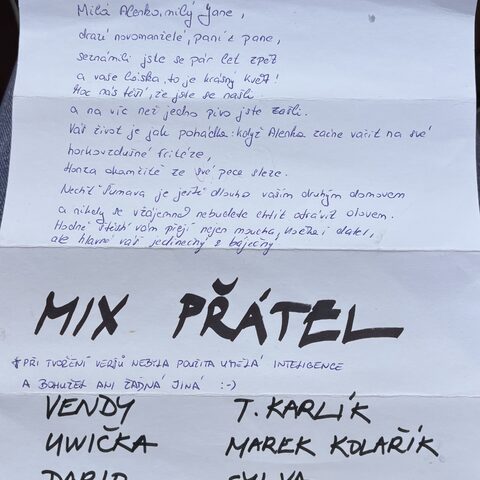 Milá Alenko, milý Jane,
drazí novomanželé, paní z pane,
seznámili jste se pár let zpět
a vaše láska, to je krásný květ!
Moc nás těší, že jste se našli
a na víc než jedno pivo jste zašli.
Váš život je jak pohádka: když Alenka začne vařit na své
horkovzdušné fritéze,
Honza okamžitě ze své pece sleze.
Nechť Šumava je ještě dlouho vaším druhým domovem
a nikdy se vzájemně nebudete chtít otrávit olovem.
Hodně štěstí vám přejí nejen moucha, kočka i datel,
ale hlavně váš jedinečný a báječný
MIX PŘÁTEL
*PŘI TVOŘENÍ VERŠŮ NEBYLA POUŽITA UMĚLÁ INTELIGENCE
A BOHUŽEL ANI ŽÁDNÁ JINÁ :-)
VENDY T. KARLÍK
UWIČKA MAREK KOLAŘÍK